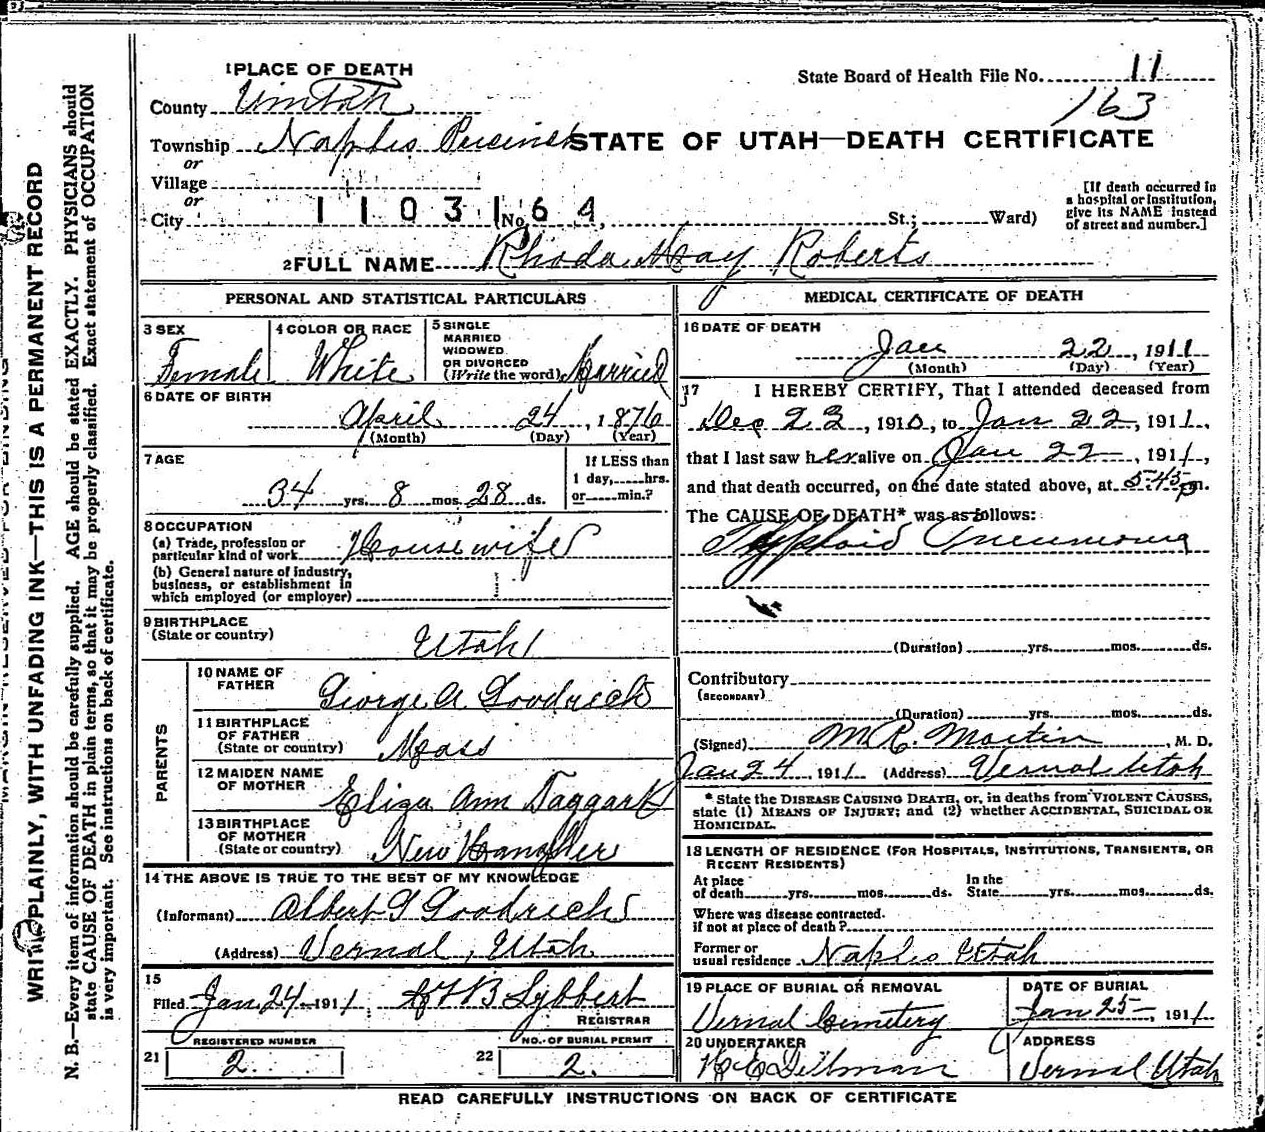 1 PLACE OF DEATH
State Board of Health File No. 11
163
County Uintah
Township Naples Precinct
STATE OF UTAH—DEATH CERTIFICATE
or
Village
or
City 1103164 (No. St.; Ward)
[If death occurred in a hospital or institution, give its NAME instead of street and number.]
2 FULL NAME Rhoda May Roberts
PERSONAL AND STATISTICAL PARTICULARS
3 SEX Female
4 COLOR OR RACE White
5 SINGLE MARRIED WIDOWED OR DIVORCED (Write the word) Married
6 DATE OF BIRTH
April 24, 1876
(Month) (Day) (Year)
7 AGE
34 yrs. 8 mos. 28 ds.
If LESS than 1 day, hrs. or min.?
8 OCCUPATION
(a) Trade, profession or particular kind of work Housewife
(b) General nature of industry, business, or establishment in which employed (or employer)
9 BIRTHPLACE
(State or country) Utah
PARENTS
10 NAME OF FATHER George A. Goodrich
11 BIRTHPLACE OF FATHER (State or country) Mass
12 MAIDEN NAME OF MOTHER Eliza Ann Taggart
13 BIRTHPLACE OF MOTHER (State or country) New
14 THE ABOVE IS TRUE TO THE BEST OF MY KNOWLEDGE
(Informant) Albert G Goodrich
(Address) Vernal, Utah
15
Filed Jan 24 1911 B Lybbert
REGISTRAR
REGISTERED NUMBER
21 2.
NO. OF BURIAL PERMIT
22 2.
MEDICAL CERTIFICATE OF DEATH
16 DATE OF DEATH
Jan 22, 1911
(Month) (Day) (Year)
17 I HEREBY CERTIFY, That I attended deceased from
Dec 23, 1910, to Jan 22, 1911,
that I last saw her alive on Jan 22, 1911,
and that death occurred, on the date stated above, at 5-45 p m.
The CAUSE OF DEATH* was as follows:
Typhoid Pneumonia
(Duration) yrs. mos. ds.
Contributory
(SECONDARY)
(Duration) yrs. mos. ds.
(Signed) M. C. Martin, M. D.
Jan 24 1911 (Address) Vernal Utah
* State the DISEASE CAUSING DEATH, or, in deaths from VIOLENT CAUSES,
state (1) MEANS OF INJURY; and (2) whether ACCIDENTAL, SUICIDAL OR
HOMICIDAL.
18 LENGTH OF RESIDENCE (FOR HOSPITALS, INSTITUTIONS, TRANSIENTS, OR
RECENT RESIDENTS)
At place of death yrs. mos. ds. In the State yrs. mos. ds.
Where was disease contracted.
if not at place of death?
Former or
usual residence Naples Utah
19 PLACE OF BURIAL OR REMOVAL
Vernal Cemetery
DATE OF BURIAL
Jan 25-, 1911
20 UNDERTAKER
Dillman
ADDRESS
Vernal Utah
READ CAREFULLY INSTRUCTIONS ON BACK OF CERTIFICATE
WRITE PLAINLY, WITH UNFADING INK—THIS IS A PERMANENT RECORD
N. B.—Every item of information should be carefully supplied. AGE should be stated EXACTLY. PHYSICIANS should
state CAUSE OF DEATH in plain terms, so that it may be properly classified. Exact statement of OCCUPATION
is very important. See instructions on back of certificate.